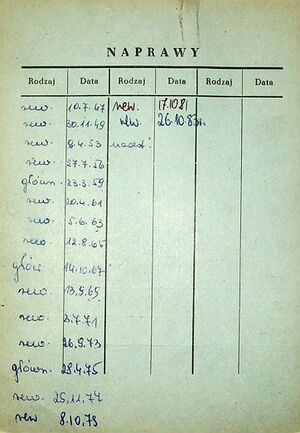 NAPRAWY
Rodzaj Data Rodzaj Data Rodzaj Data
rew. 10.7.47 rew. 17.10.81
rew. 30.11.49 rew. 26.10.83r.
rew. 9.4.53
rew. 27.7.56
główn. 23.3.59
rew. 20.4.61
rew. 5.6.63
rew 12.8.65
głów. 14.10.67
rew. 13.9.69
rew. 3.7.71
rew. 26.9.73
główn. 28.4.75
rew. 25.11.77
rew 8.10.79